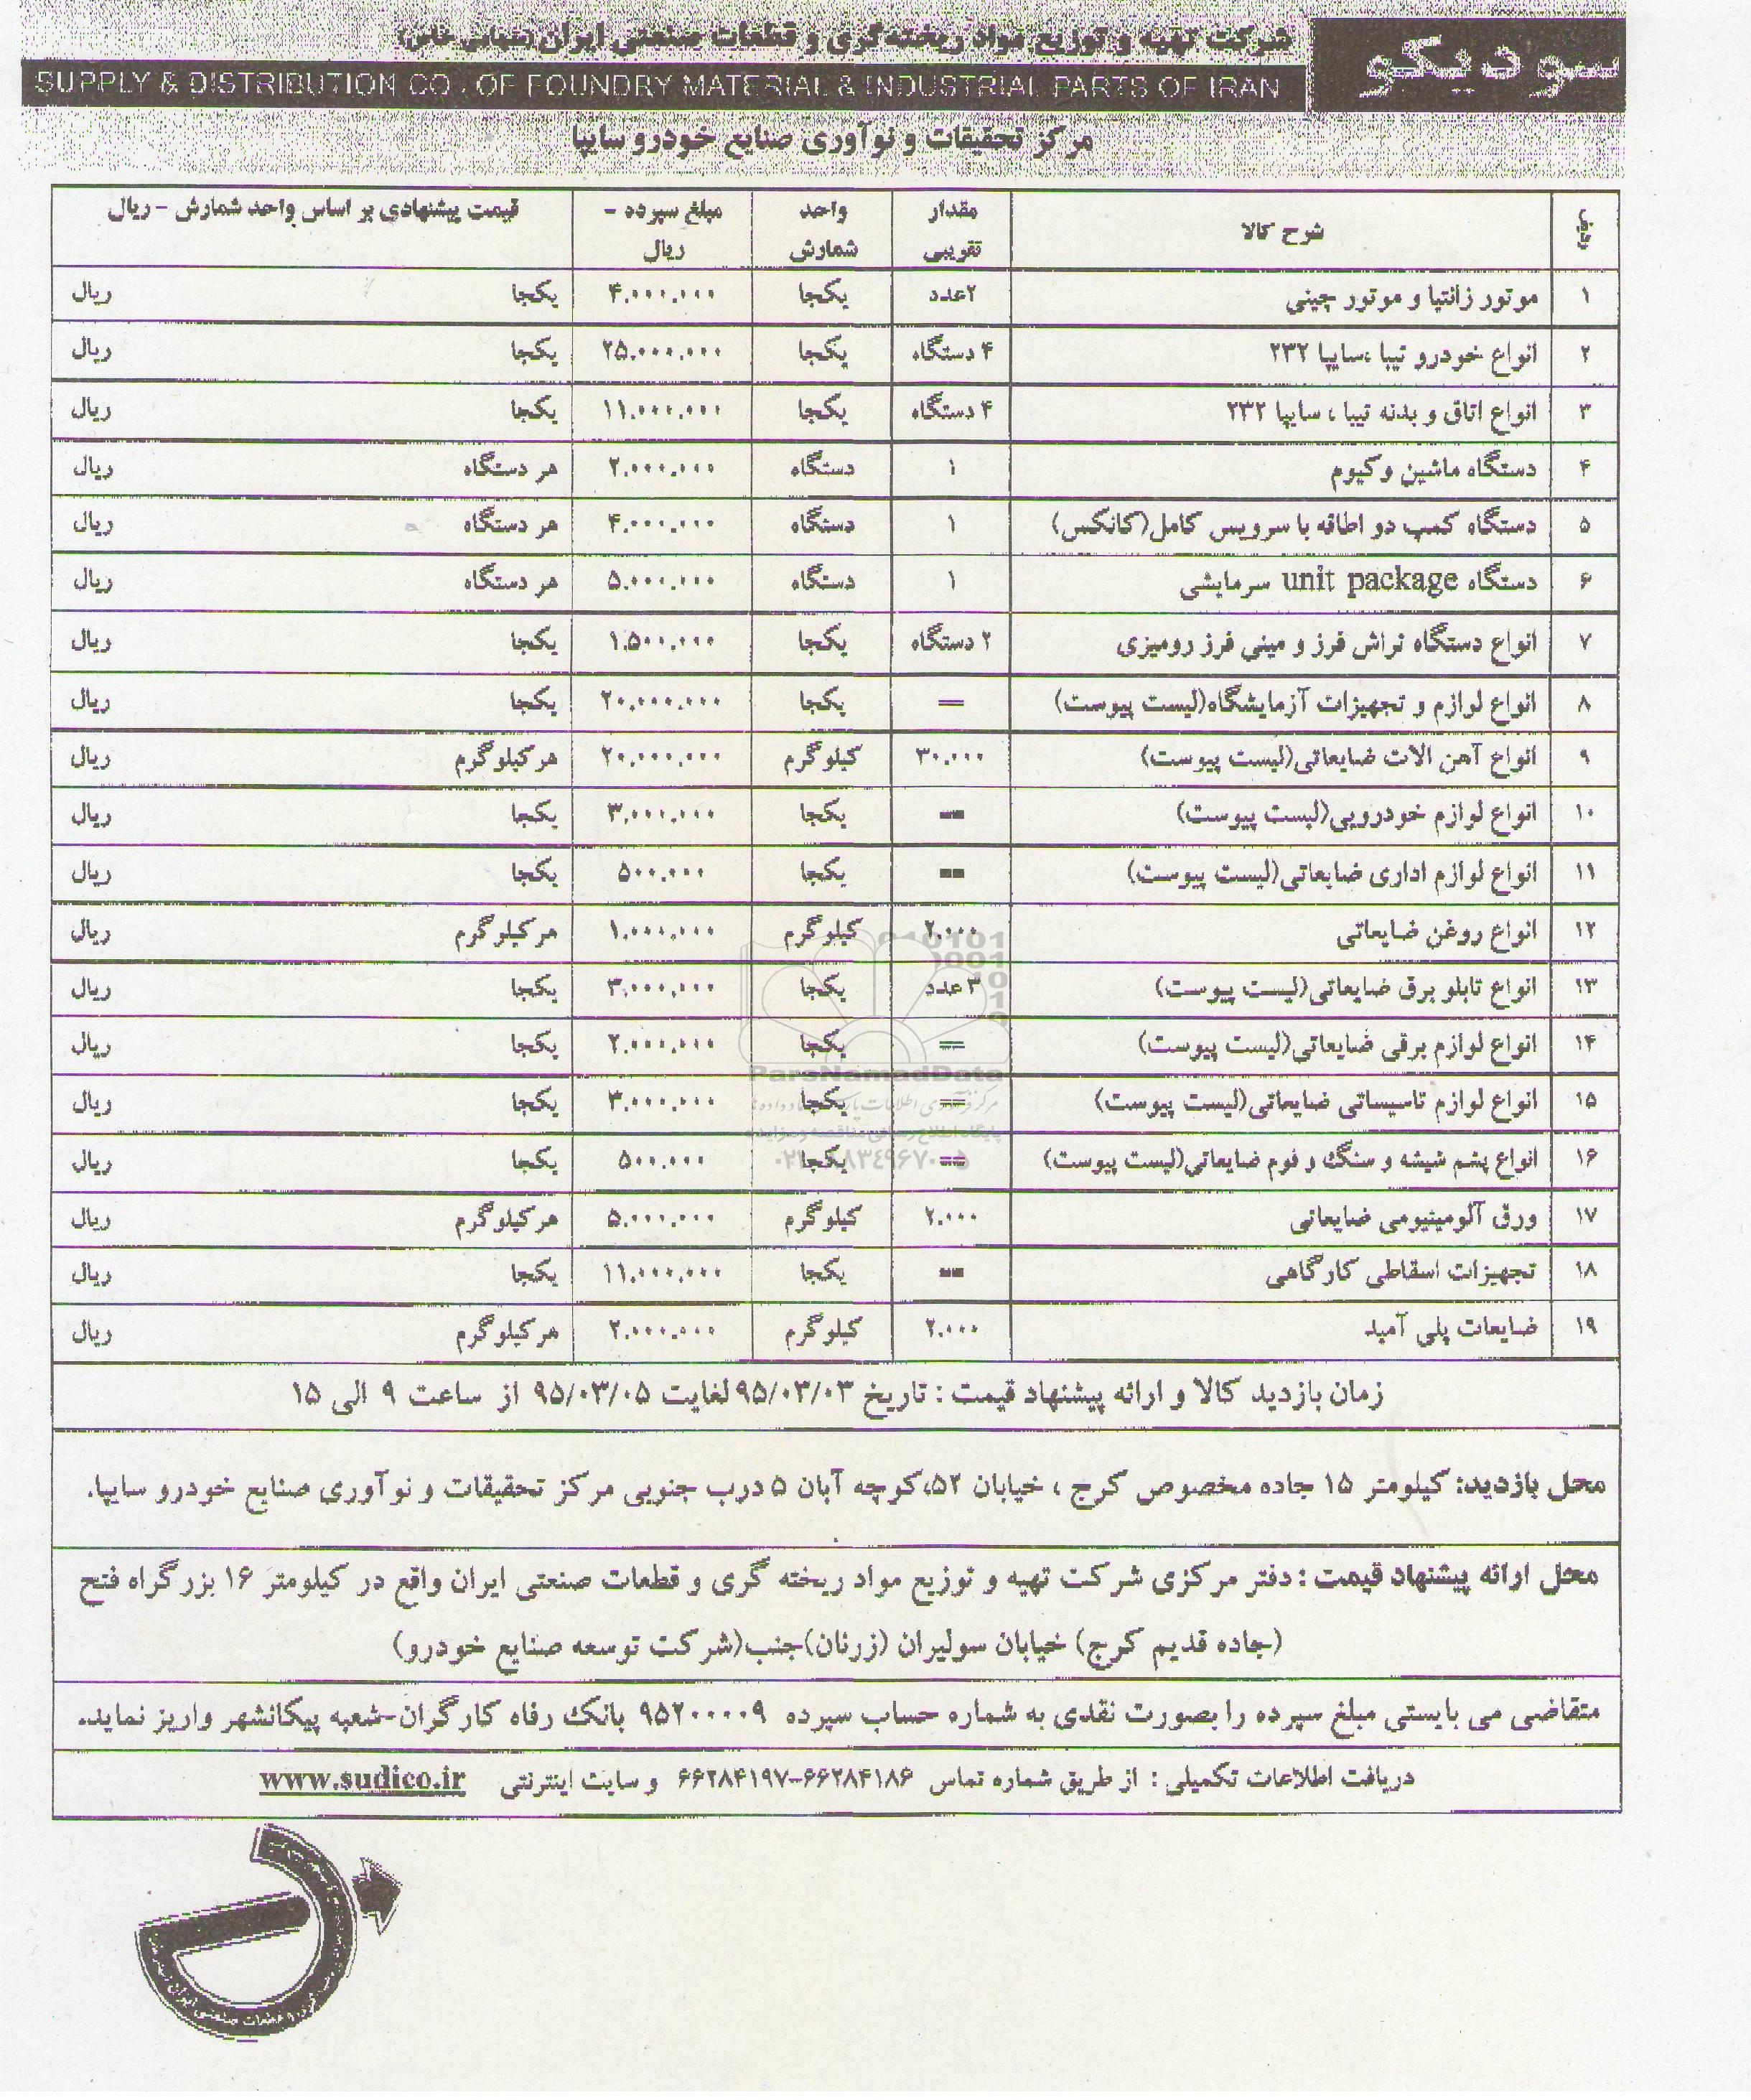 سودیکو
شرکت تهیه و توزیع مواد ریخته گری و قطعات صنعتی ایران (سهامی خاص)
SUPPLY & DISTRIBUTION CO. OF FOUNDRY MATERIAL & INDUSTRIAL PARTS OF IRAN
مرکز تحقیقات و نوآوری صنایع خودرو سایپا
ردیف شرح کالا مقدار تقریبی واحد شمارش مبلغ سپرده – ریال قیمت پیشنهادی بر اساس واحد شمارش – ریال
۱ موتور زانتیا و موتور چینی ۲عدد یکجا ۴.۰۰۰.۰۰۰ یکجا ریال
۲ انواع خودرو تیبا ،سایپا ۲۳۲ ۴ دستگاه یکجا ۲۵.۰۰۰.۰۰۰ یکجا ریال
۳ انواع اتاق و بدنه تیبا ، سایپا ۲۳۲ ۴ دستگاه یکجا ۱۱.۰۰۰.۰۰۰ یکجا ریال
۴ دستگاه ماشین وکیوم ۱ دستگاه ۲.۰۰۰.۰۰۰ هر دستگاه ریال
۵ دستگاه کمپ دو اطاقه با سرویس کامل(کانکس) ۱ دستگاه ۴.۰۰۰.۰۰۰ هر دستگاه ریال
۶ دستگاه unit package سرمایشی ۱ دستگاه ۵.۰۰۰.۰۰۰ هر دستگاه ریال
۷ انواع دستگاه تراش فرز و مینی فرز رومیزی ۲ دستگاه یکجا ۱.۵۰۰.۰۰۰ یکجا ریال
۸ انواع لوازم و تجهیزات آزمایشگاه(لیست پیوست) == یکجا ۲۰.۰۰۰.۰۰۰ یکجا ریال
۹ انواع آهن الات ضایعاتی(لیست پیوست) ۳۰.۰۰۰ کیلوگرم ۲۰.۰۰۰.۰۰۰ هرکیلوگرم ریال
۱۰ انواع لوازم خودرویی(لیست پیوست) == یکجا ۳.۰۰۰.۰۰۰ یکجا ریال
۱۱ انواع لوازم اداری ضایعاتی(لیست پیوست) == یکجا ۵۰۰.۰۰۰ یکجا ریال
۱۲ انواع روغن ضایعاتی ۲.۰۰۰ کیلوگرم ۱.۰۰۰.۰۰۰ هرکیلوگرم ریال
۱۳ انواع تابلو برق ضایعاتی(لیست پیوست) ۳عدد یکجا ۳.۰۰۰.۰۰۰ یکجا ریال
۱۴ انواع لوازم برقی ضایعاتی(لیست پیوست) == یکجا ۲.۰۰۰.۰۰۰ یکجا ریال
۱۵ انواع لوازم تاسیساتی ضایعاتی(لیست پیوست) == یکجا ۳.۰۰۰.۰۰۰ یکجا ریال
۱۶ انواع پشم شیشه و سنگ و فوم ضایعاتی(لیست پیوست) == یکجا ۵۰۰.۰۰۰ یکجا ریال
۱۷ ورق آلومینیومی ضایعاتی ۲.۰۰۰ کیلوگرم ۵.۰۰۰.۰۰۰ هرکیلوگرم ریال
۱۸ تجهیزات اسقاطی کارگاهی == یکجا ۱۱.۰۰۰.۰۰۰ یکجا ریال
۱۹ ضایعات پلی آمید ۲.۰۰۰ کیلوگرم ۲.۰۰۰.۰۰۰ هرکیلوگرم ریال
ParsNamadData
زمان بازدید کالا و ارائه پیشنهاد قیمت : تاریخ ۹۵/۰۳/۰۳ لغایت ۹۵/۰۳/۰۵ از ساعت ۹ الی ۱۵
محل بازدید: کیلومتر ۱۵ جاده مخصوص کرج ، خیابان ۵۲،کوچه آبان ۵ درب جنوبی مرکز تحقیقات و نوآوری صنایع خودرو سایپا.
محل ارائه پیشنهاد قیمت : دفتر مرکزی شرکت تهیه و توزیع مواد ریخته گری و قطعات صنعتی ایران واقع در کیلومتر ۱۶ بزرگراه فتح
(جاده قدیم کرج) خیابان سولیران (زرنان)جنب(شرکت توسعه صنایع خودرو)
متقاضی می بایستی مبلغ سپرده را بصورت نقدی به شماره حساب سپرده ۹۵۲۰۰۰۰۹ بانک رفاه کارگران-شعبه پیکانشهر واریز نماید.
دریافت اطلاعات تکمیلی : از طریق شماره تماس ۶۶۲۸۴۱۸۶-۶۶۲۸۴۱۹۷ و سایت اینترنتی www.sudico.ir